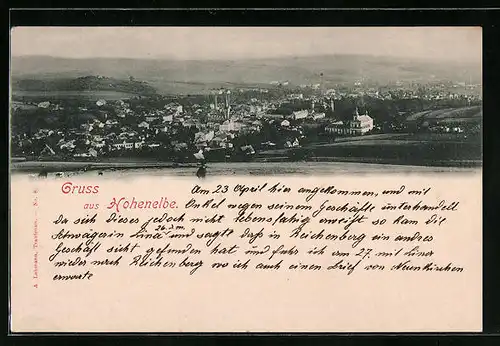 Gruss
aus Hohenelbe.
am 23 April hier angekommen, und mit
Onkel wegen seinem Geschäfte unterhandelt
Da sich dieses jedoch nicht lebensfähig erweist so kam die
26. d.m.
Schwägerin Lina und sagte dass in Reichenberg ein andres
Geschäft sich gefunden hat und fuhr ich am 27. mit Lina
wieder nach Reichenberg wo ich auch einen Brief von Neunkirchen
erwarte